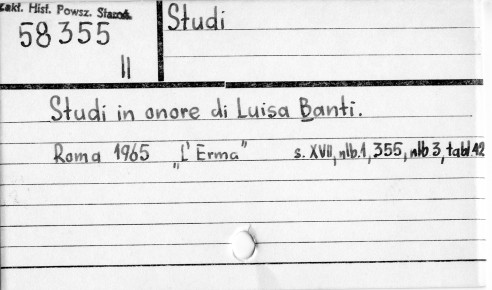 Zakł. Hist. Powsz. Staroż.
58355
II
Studi
Studi in onore di Luisa Banti.
Roma 1965 „L'Erma" s. XVII, nlb.1, 355, nlb 3, tabl.42